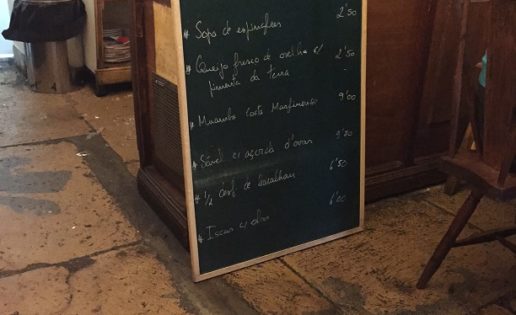 # Sopa de espinafres 2'50
# Queijo fresco de ovelha c/ 2'50
pimenta da terra -
# Muamba Costa Marfinense 9'00
# Sável c/ açorda d'ovas 9'50
# 1/2 desf. de bacalhau 6'50
# Iscas c/ elas 6'00